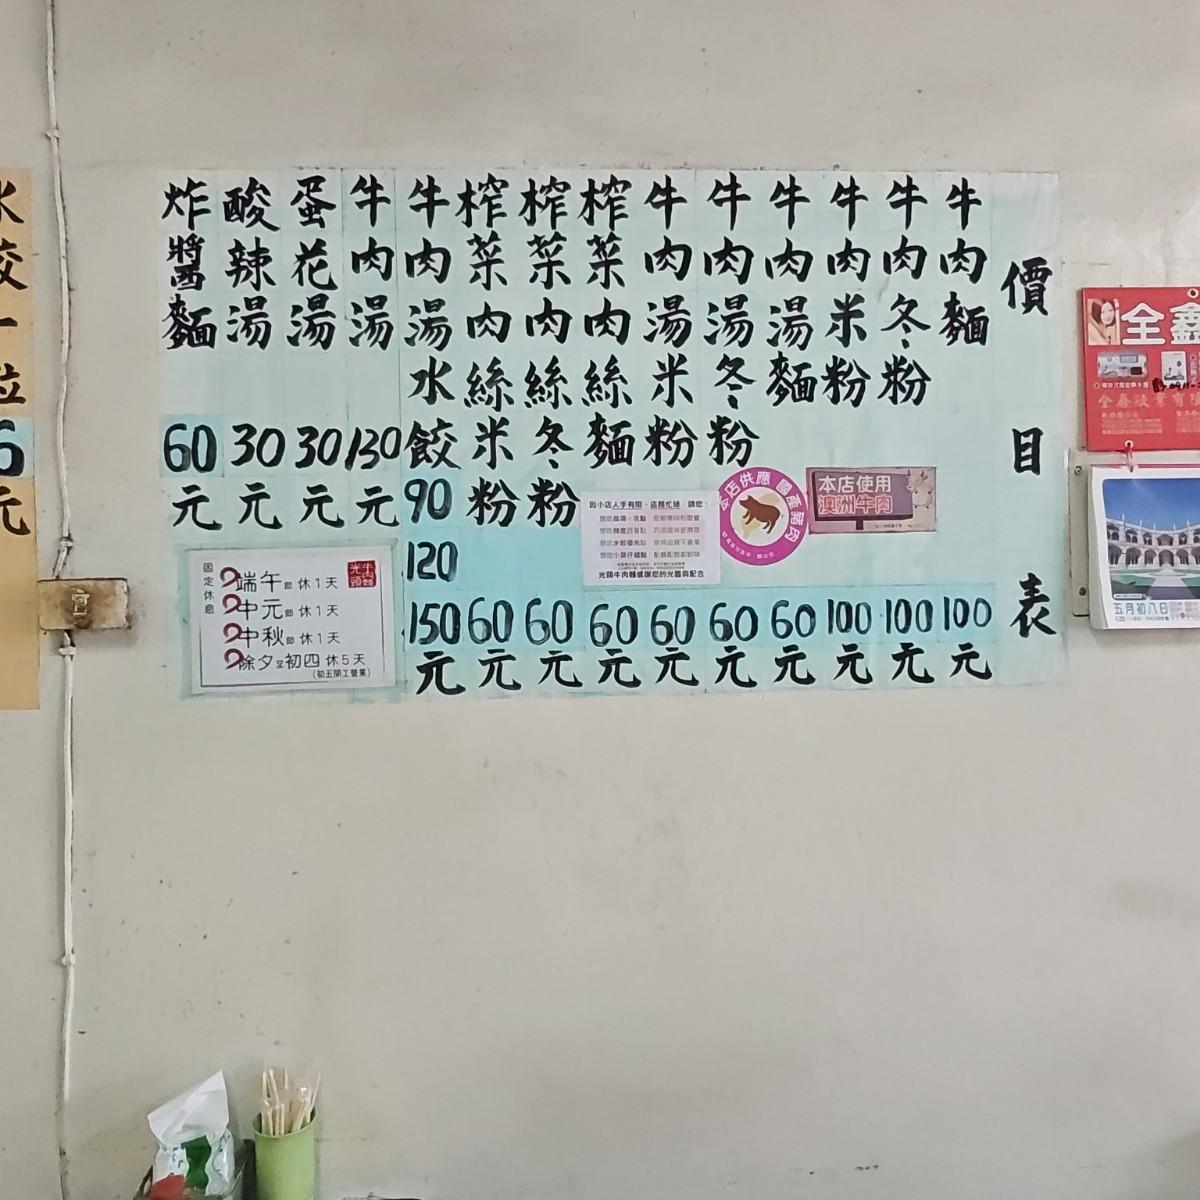 價目表
牛肉麵 100元
牛肉冬粉 100元
牛肉米粉 100元
牛肉湯麵 60元
牛肉湯冬粉 60元
牛肉湯米粉 60元
榨菜肉絲麵 60元
榨菜肉絲冬粉 60元
榨菜肉絲米粉 60元
牛肉湯水餃 90 120 150元
牛肉湯 130元
蛋花湯 30元
酸辣湯 30元
炸醬麵 60元
本店使用
澳洲牛肉
本店供應 國產豬肉
因小店人手有限、店務忙碌 請您:
光頭牛肉麵感謝您的光臨與配合
固定休息
端午節 休1天
中元節 休1天
中秋節 休1天
除夕至初四 休5天
(初五開工營業)
光頭牛肉麵
水餃一粒
6元
全鑫
五月初八日